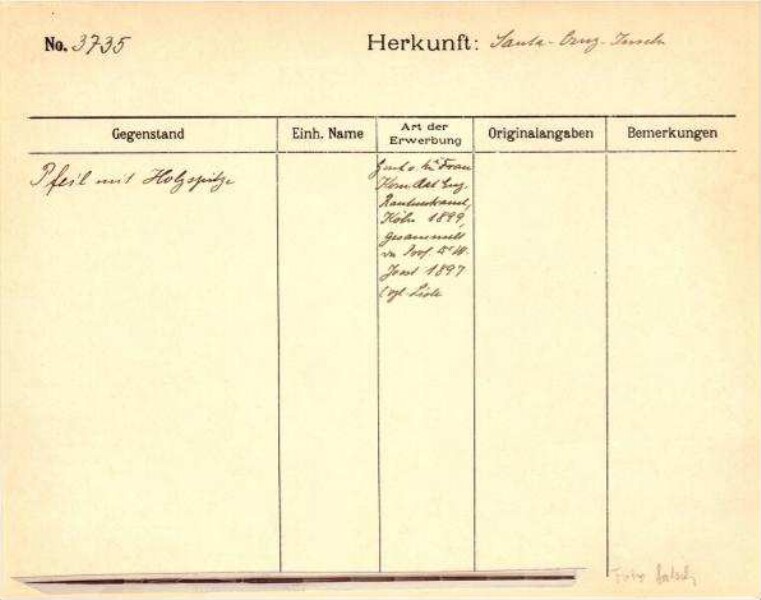 No. 3735
Herkunft: Santa-Cruz-Inseln
Gegenstand
Einh. Name
Art der
Erwerbung
Originalangaben
Bemerkungen
Pfeil mit Holzspitze
Frau
Eug.
Rautenstrauch,
Köln 1899,
gesammelt
v. Prof. Dr. W.
Joest 1897
(vgl. Liste
Foto falsch